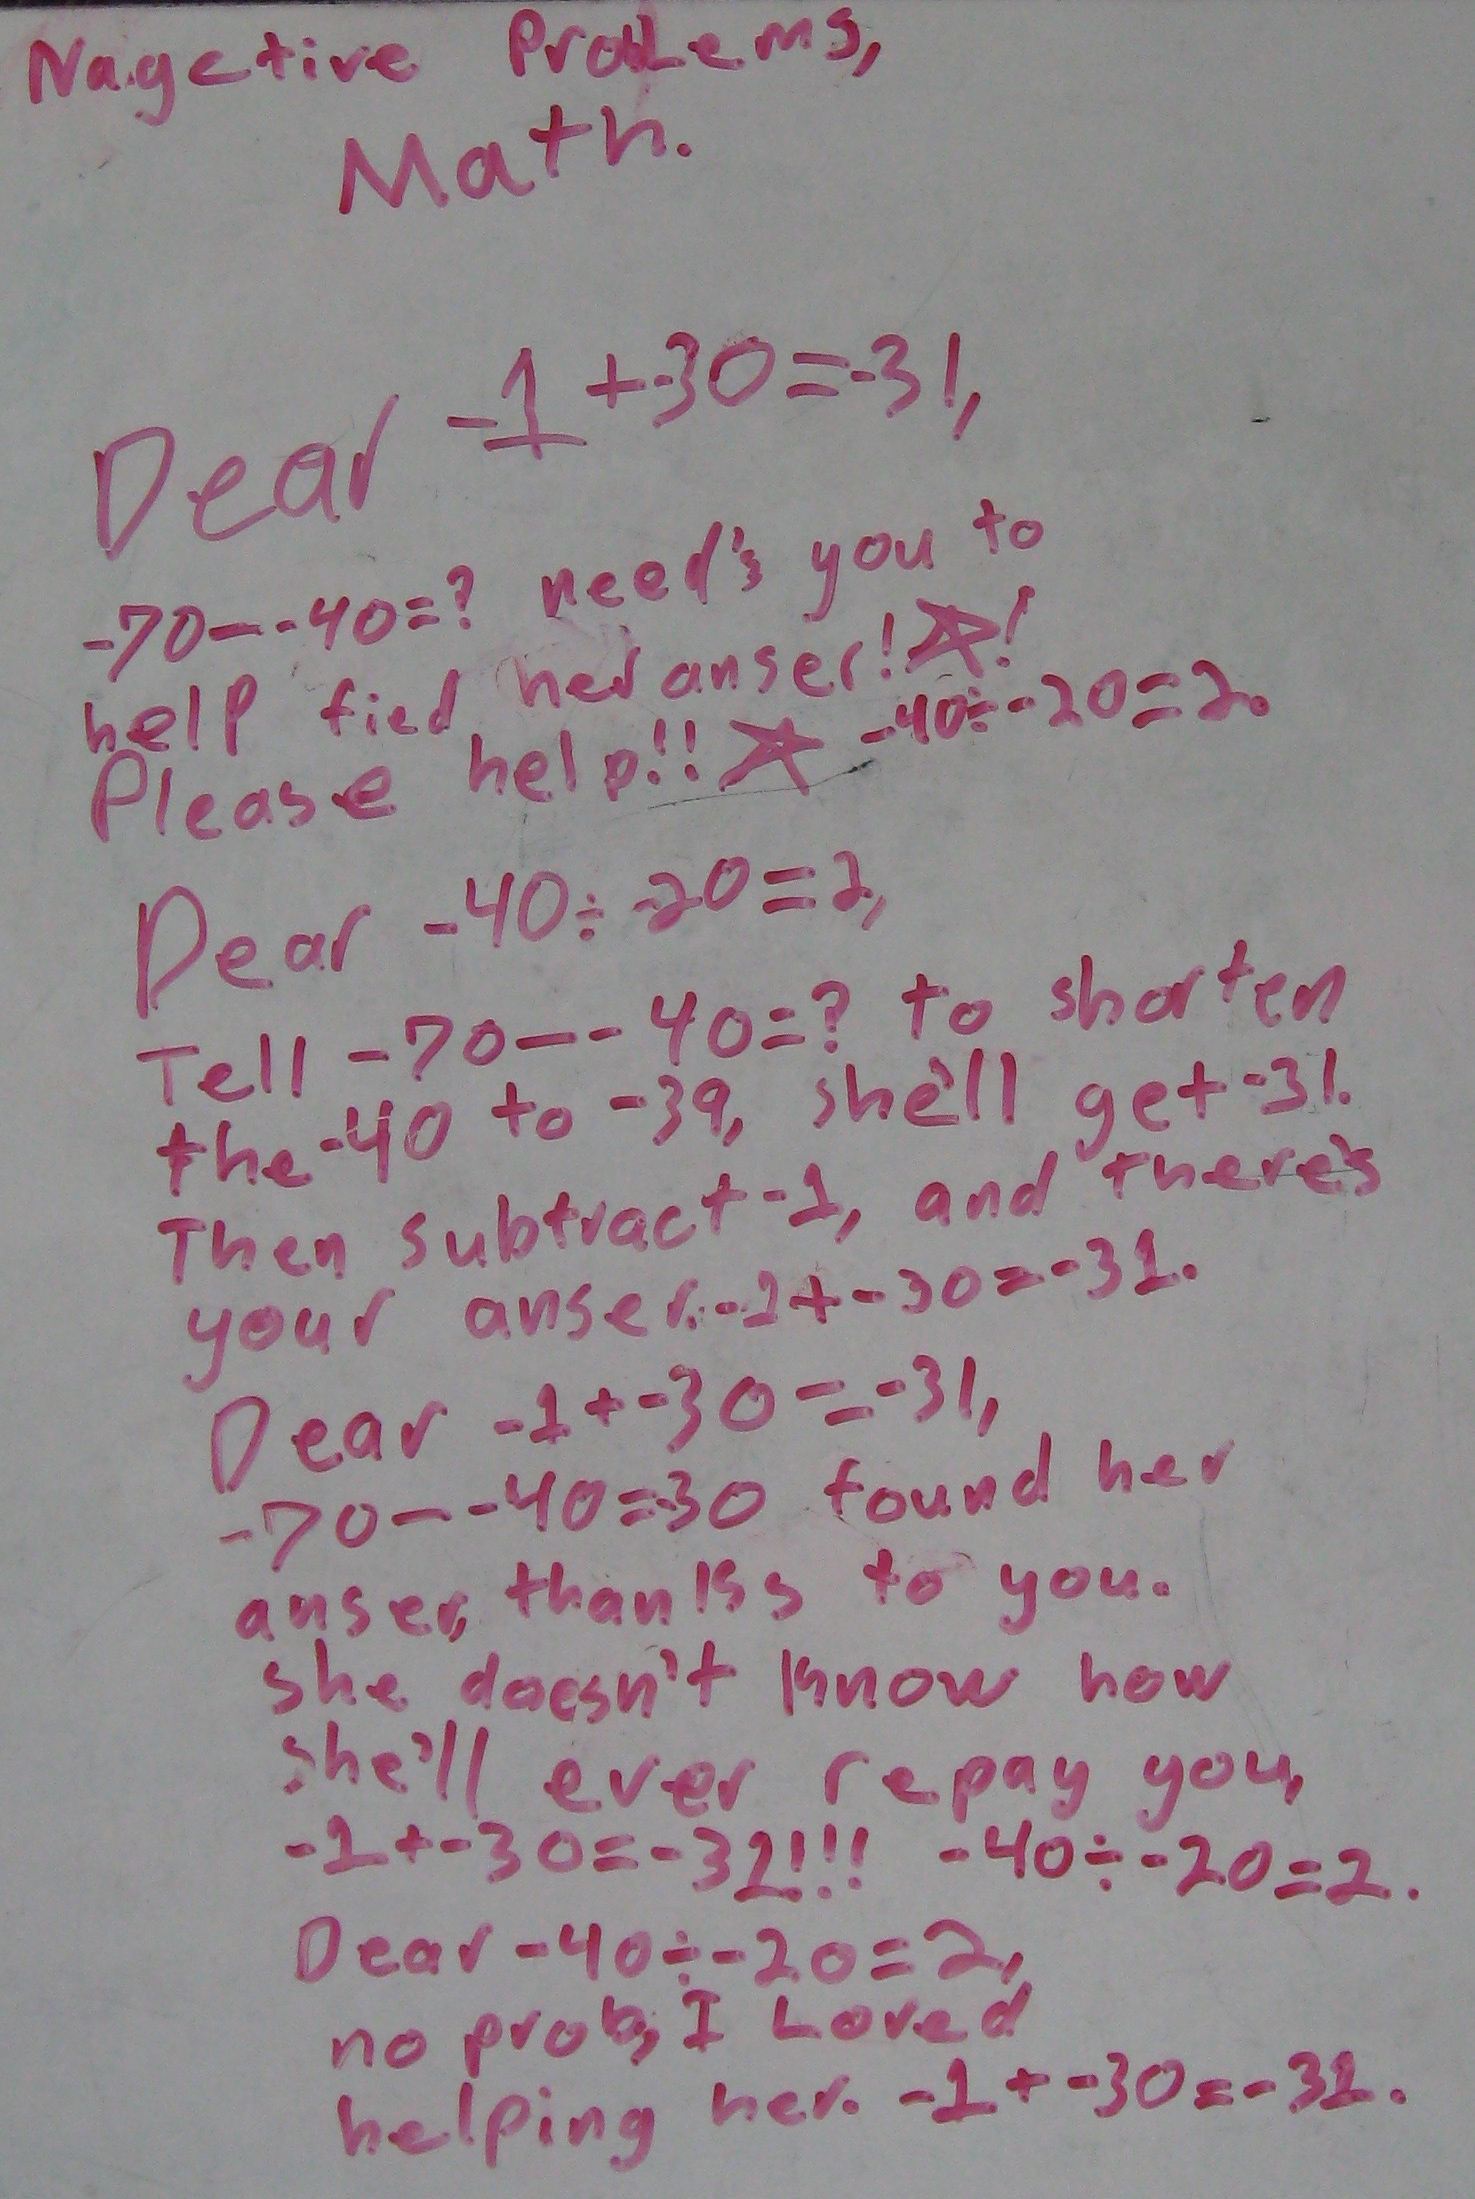 Nagetive Problems,
Math.
Dear -1 +-30=-31,
-70--40=? need's you to
help fied her anser!☆!
Please help!!☆ -40÷-20=2.
Dear -40÷-20=2,
Tell -70--40=? to shorten
the -40 to -39, she'll get -31.
Then subtract -1, and there's
your anser. -1+-30=-31.
Dear -1+-30=-31,
-70--40=-30 found her
anser, thanks to you.
She doesn't know how
she'll ever repay you,
-1+-30=-31!!! -40÷-20=2.
Dear -40÷-20=2,
no prob, I Loved
helping her. -1+-30=-31.